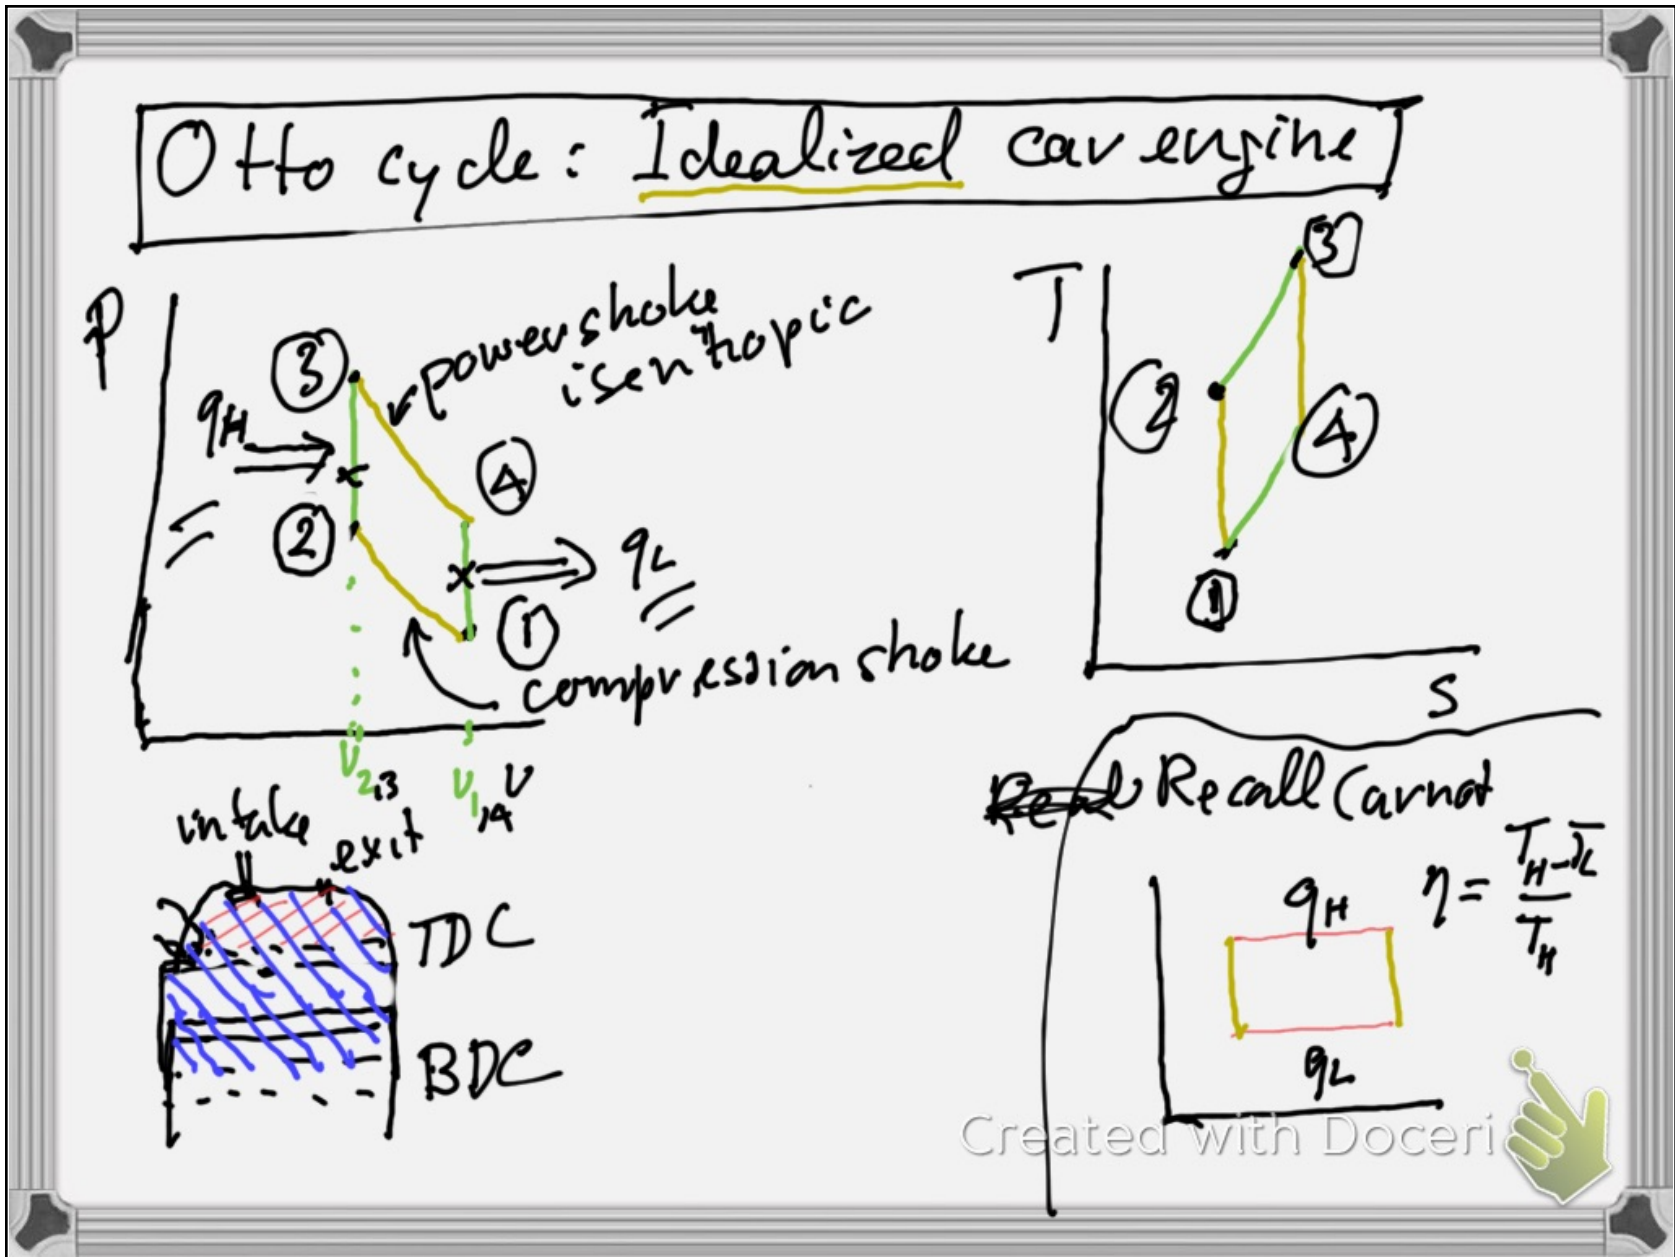 Otto cycle: Idealized car engine
P
3
power stroke
isentropic
qH
4
2
qL
1
compression stroke
V2,3
V1,4
V
T
3
2
4
1
S
intake
exit
TDC
BDC
Recall Carnot
η = TH-TL
TH
qH
qL
Created with Doceri